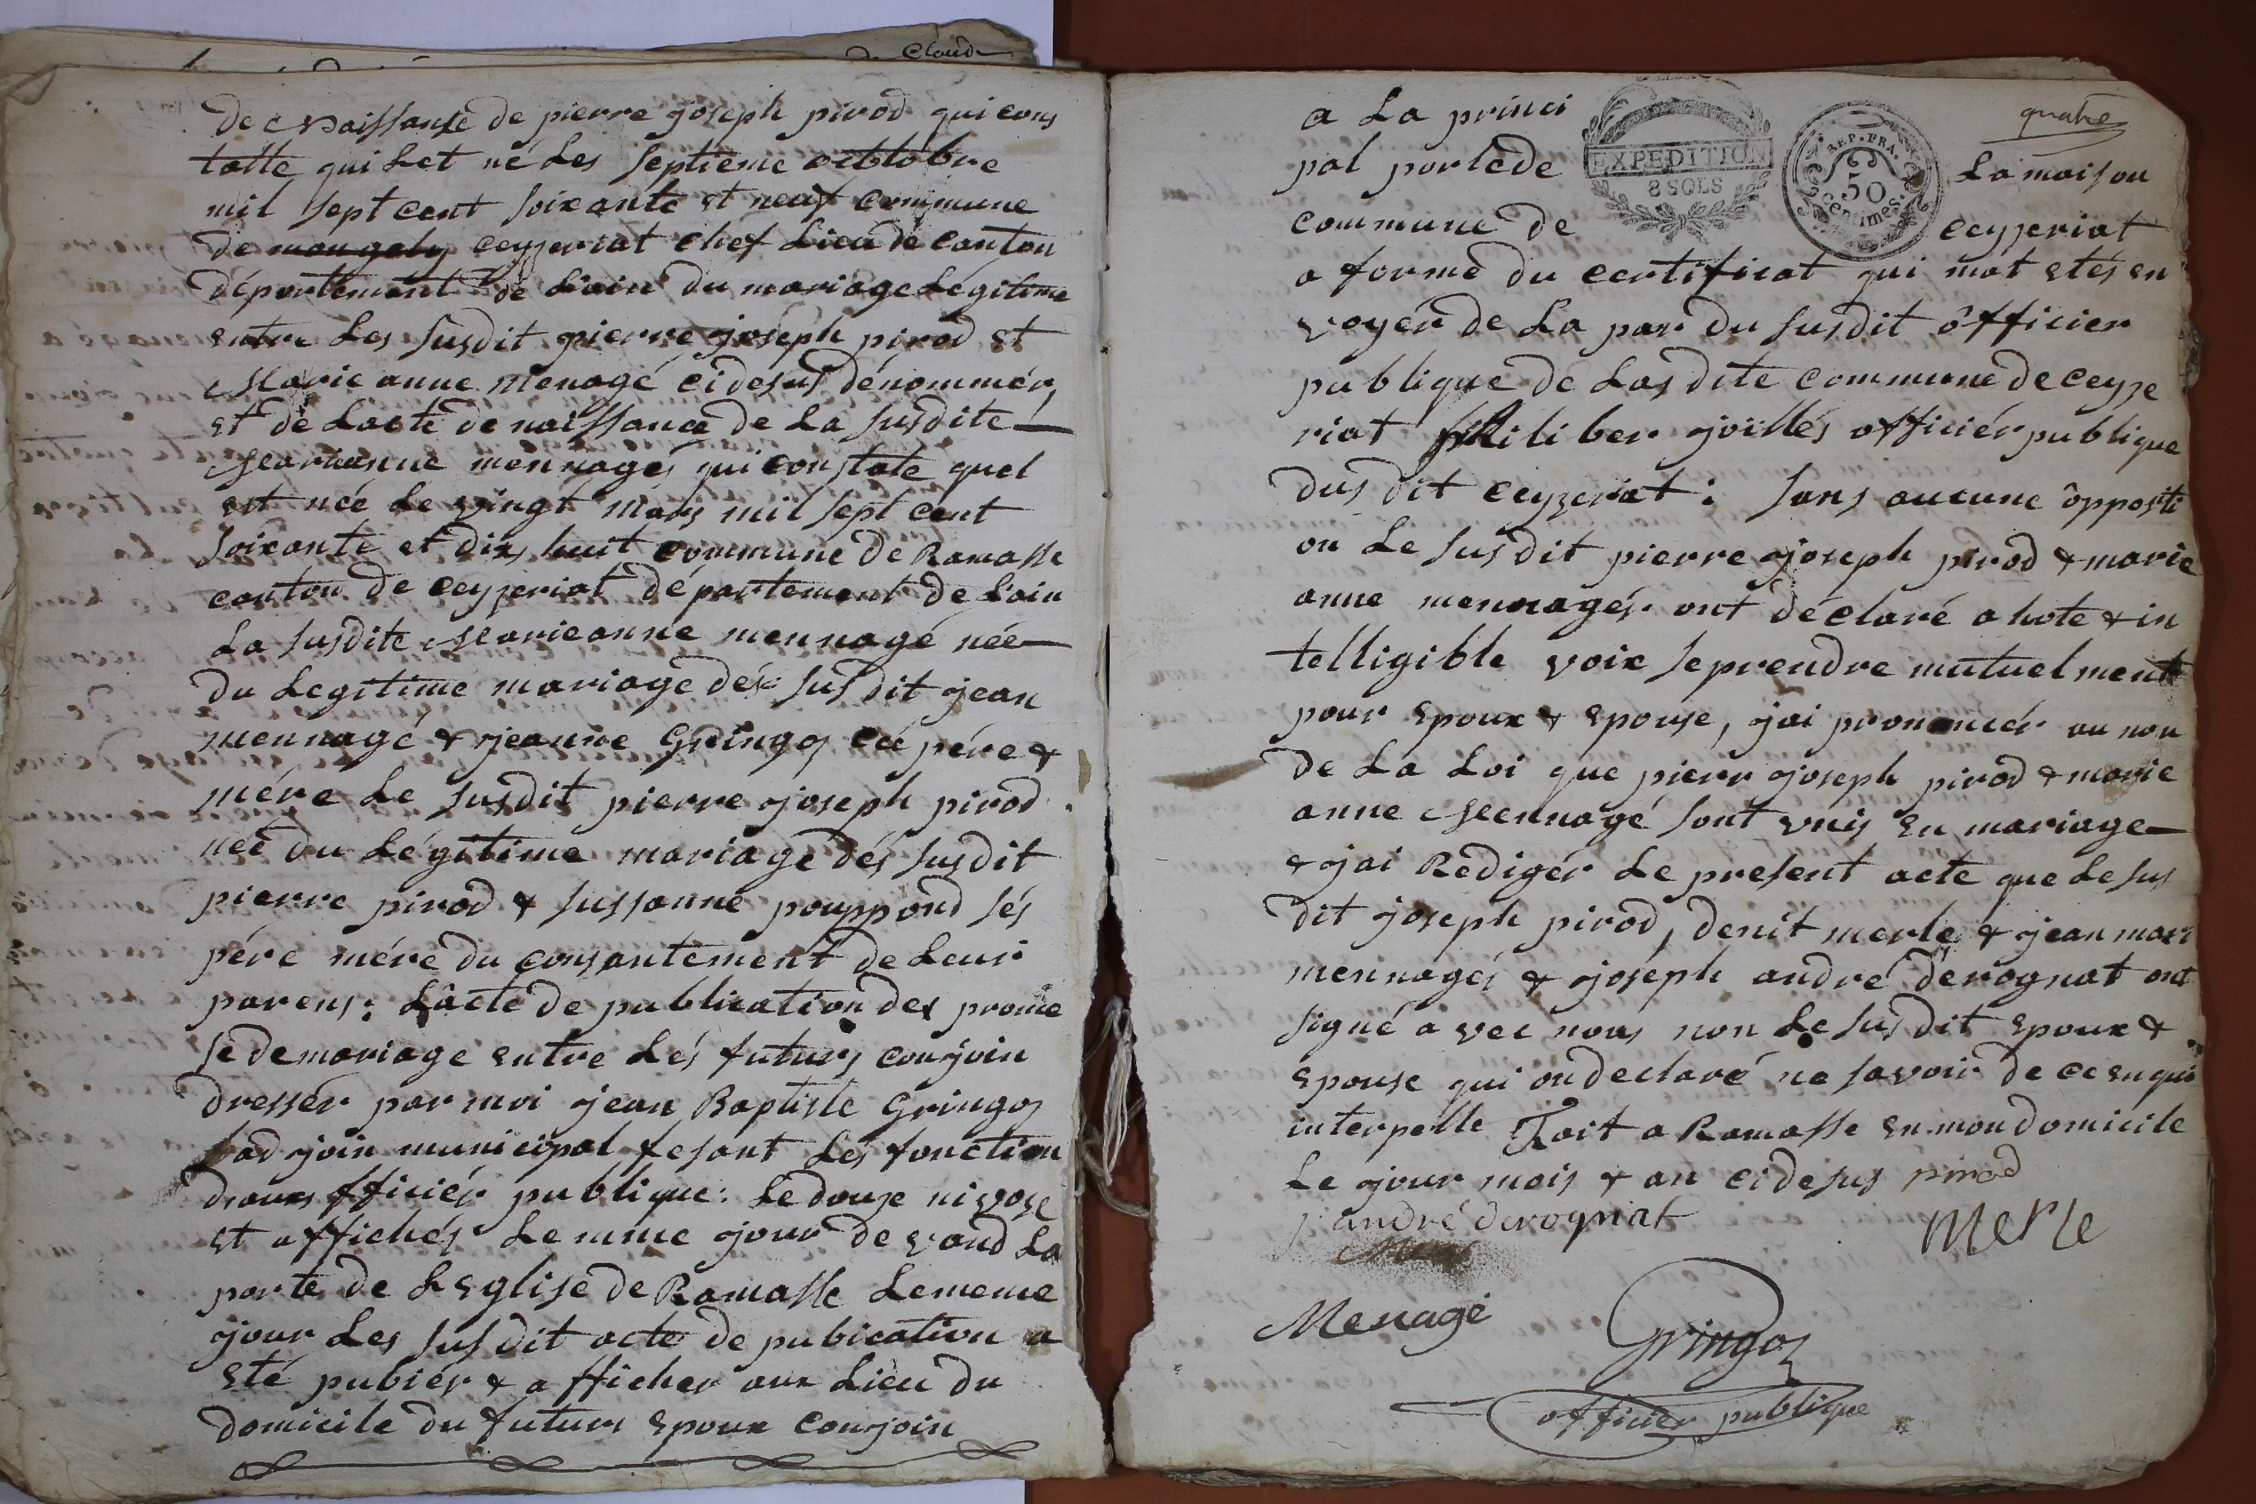 Claude
de Naissanse de pierre joseph pirod qui cons
tatte qui Let né Les septieme octtobre
mil sept cent soixante et neuf commune
de mongaly ceyzeriat chef Lieu de canton
département de Lain du mariage Legitime
entre Les susdit pierre joseph pirod et
Marie anne Menagé cidesus dénommér,
et de Lacte de naissance de La susdite
Marieanne mennagés qui constate quel
est néé Le vingt Mars mil sept cent
soixante et dix huit commune de Ramasse
canton de ceyzeriat département de Lain
La susdite Marieanne mennagé née
du Legitime mariage dés susdit jean
mennagé & jeanne Gringoz cée pére &
mére Le susdit pierre joseph pirod
néé du Légitime mariage dés susdit
pierre pirod & sussanne pouppond sés
pére mére du consantement de Leur
parens : Lacte de publication des prome
se de mariage entre Lés futurs conjoin
dressér par moi jean Baptiste Gringoz
adjoin municipal fesant Les fonction
officiér publique : Le douze nivose
et affichés Le mme jour devand La
porte de Leglise de Ramasse Le meme
jour Les susdit acte de pubication a
Eté pubiér & afficher aux Lieu du
domicile du futurs Epoux conjoin
quatre
EXPEDITION
8 SOLS
REP. FRA.
50
centimes.
a La princi
pal porte de La maison
commune de ceyzeriat
a forme du certificat qui mat etés en
voyér de La par du susdit officier
publique de Las dite commune de ceyze
riat philiber joillés officiér publique
dus dit ceyzeriat : sans aucune oppositi
on Le susdit pierre joseph pirod & marie
anne mennagér ont déclaré a hote & in
telligible voix se prendre mutuelment
pour Epoux & Epouse, jai prononcér au non
de La Loi que pierr joseph pirod & marie
anne Mennagé sont unis en mariage
& jai Redigér Le present acte que Le sus
dit joseph pirod, denit merle & jean mari
mennagés & joséph andré dérognat ont
signé avec nous non Le susdit Epoux &
Epouse qui on declaré ne savoir de ce enqui
interpelle Fait a Ramasse en mon domicile
Le jour mois & an cidesus pirod
j andré derognat
Merle
Menagé
Gringoz
officier publique